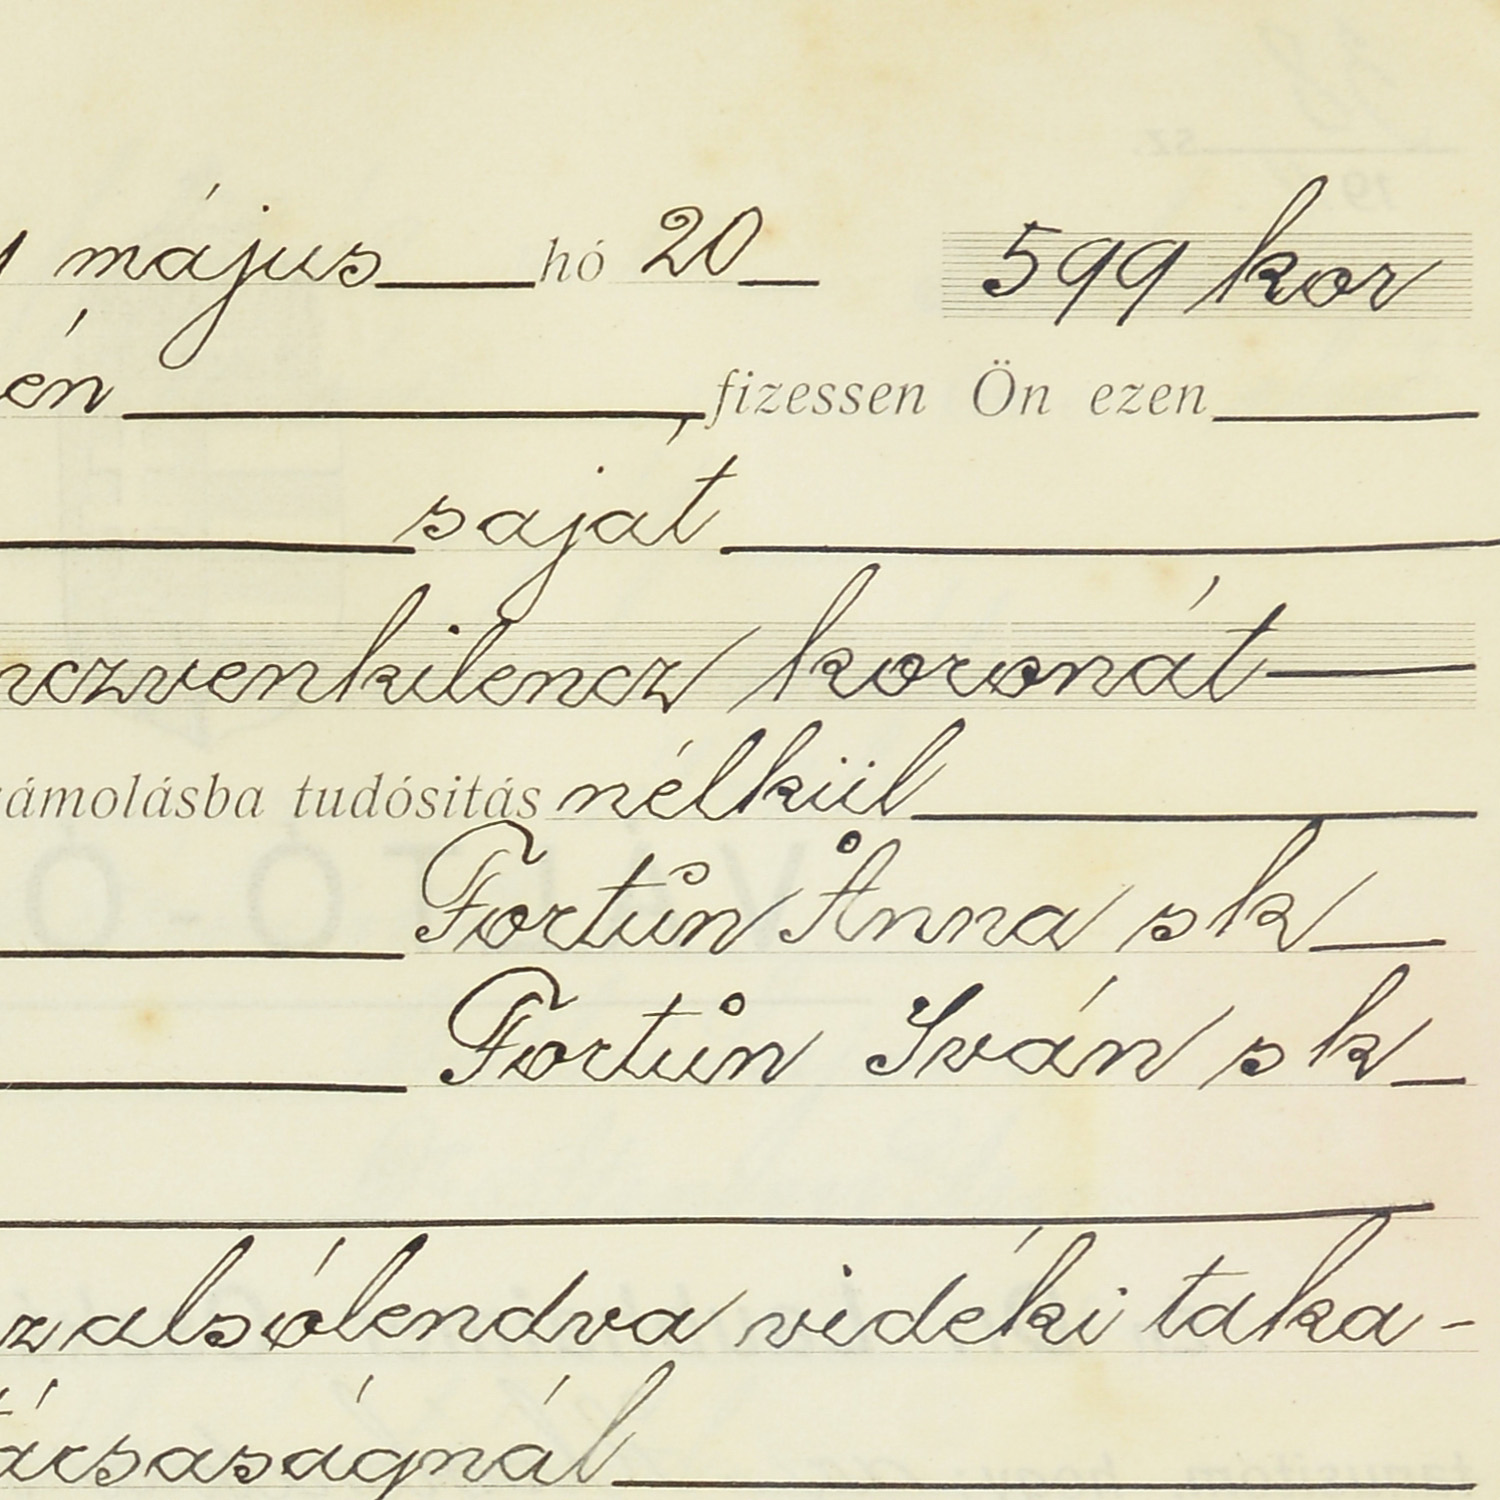 május hó 20 599 kor
én fizessen Ön ezen
saját
nczvenkilencz koronát
számolásba tudósitás nélkül
Fortún Anna sk
Fortún Iván sk
az alsólendva vidéki taka-
társaságnál